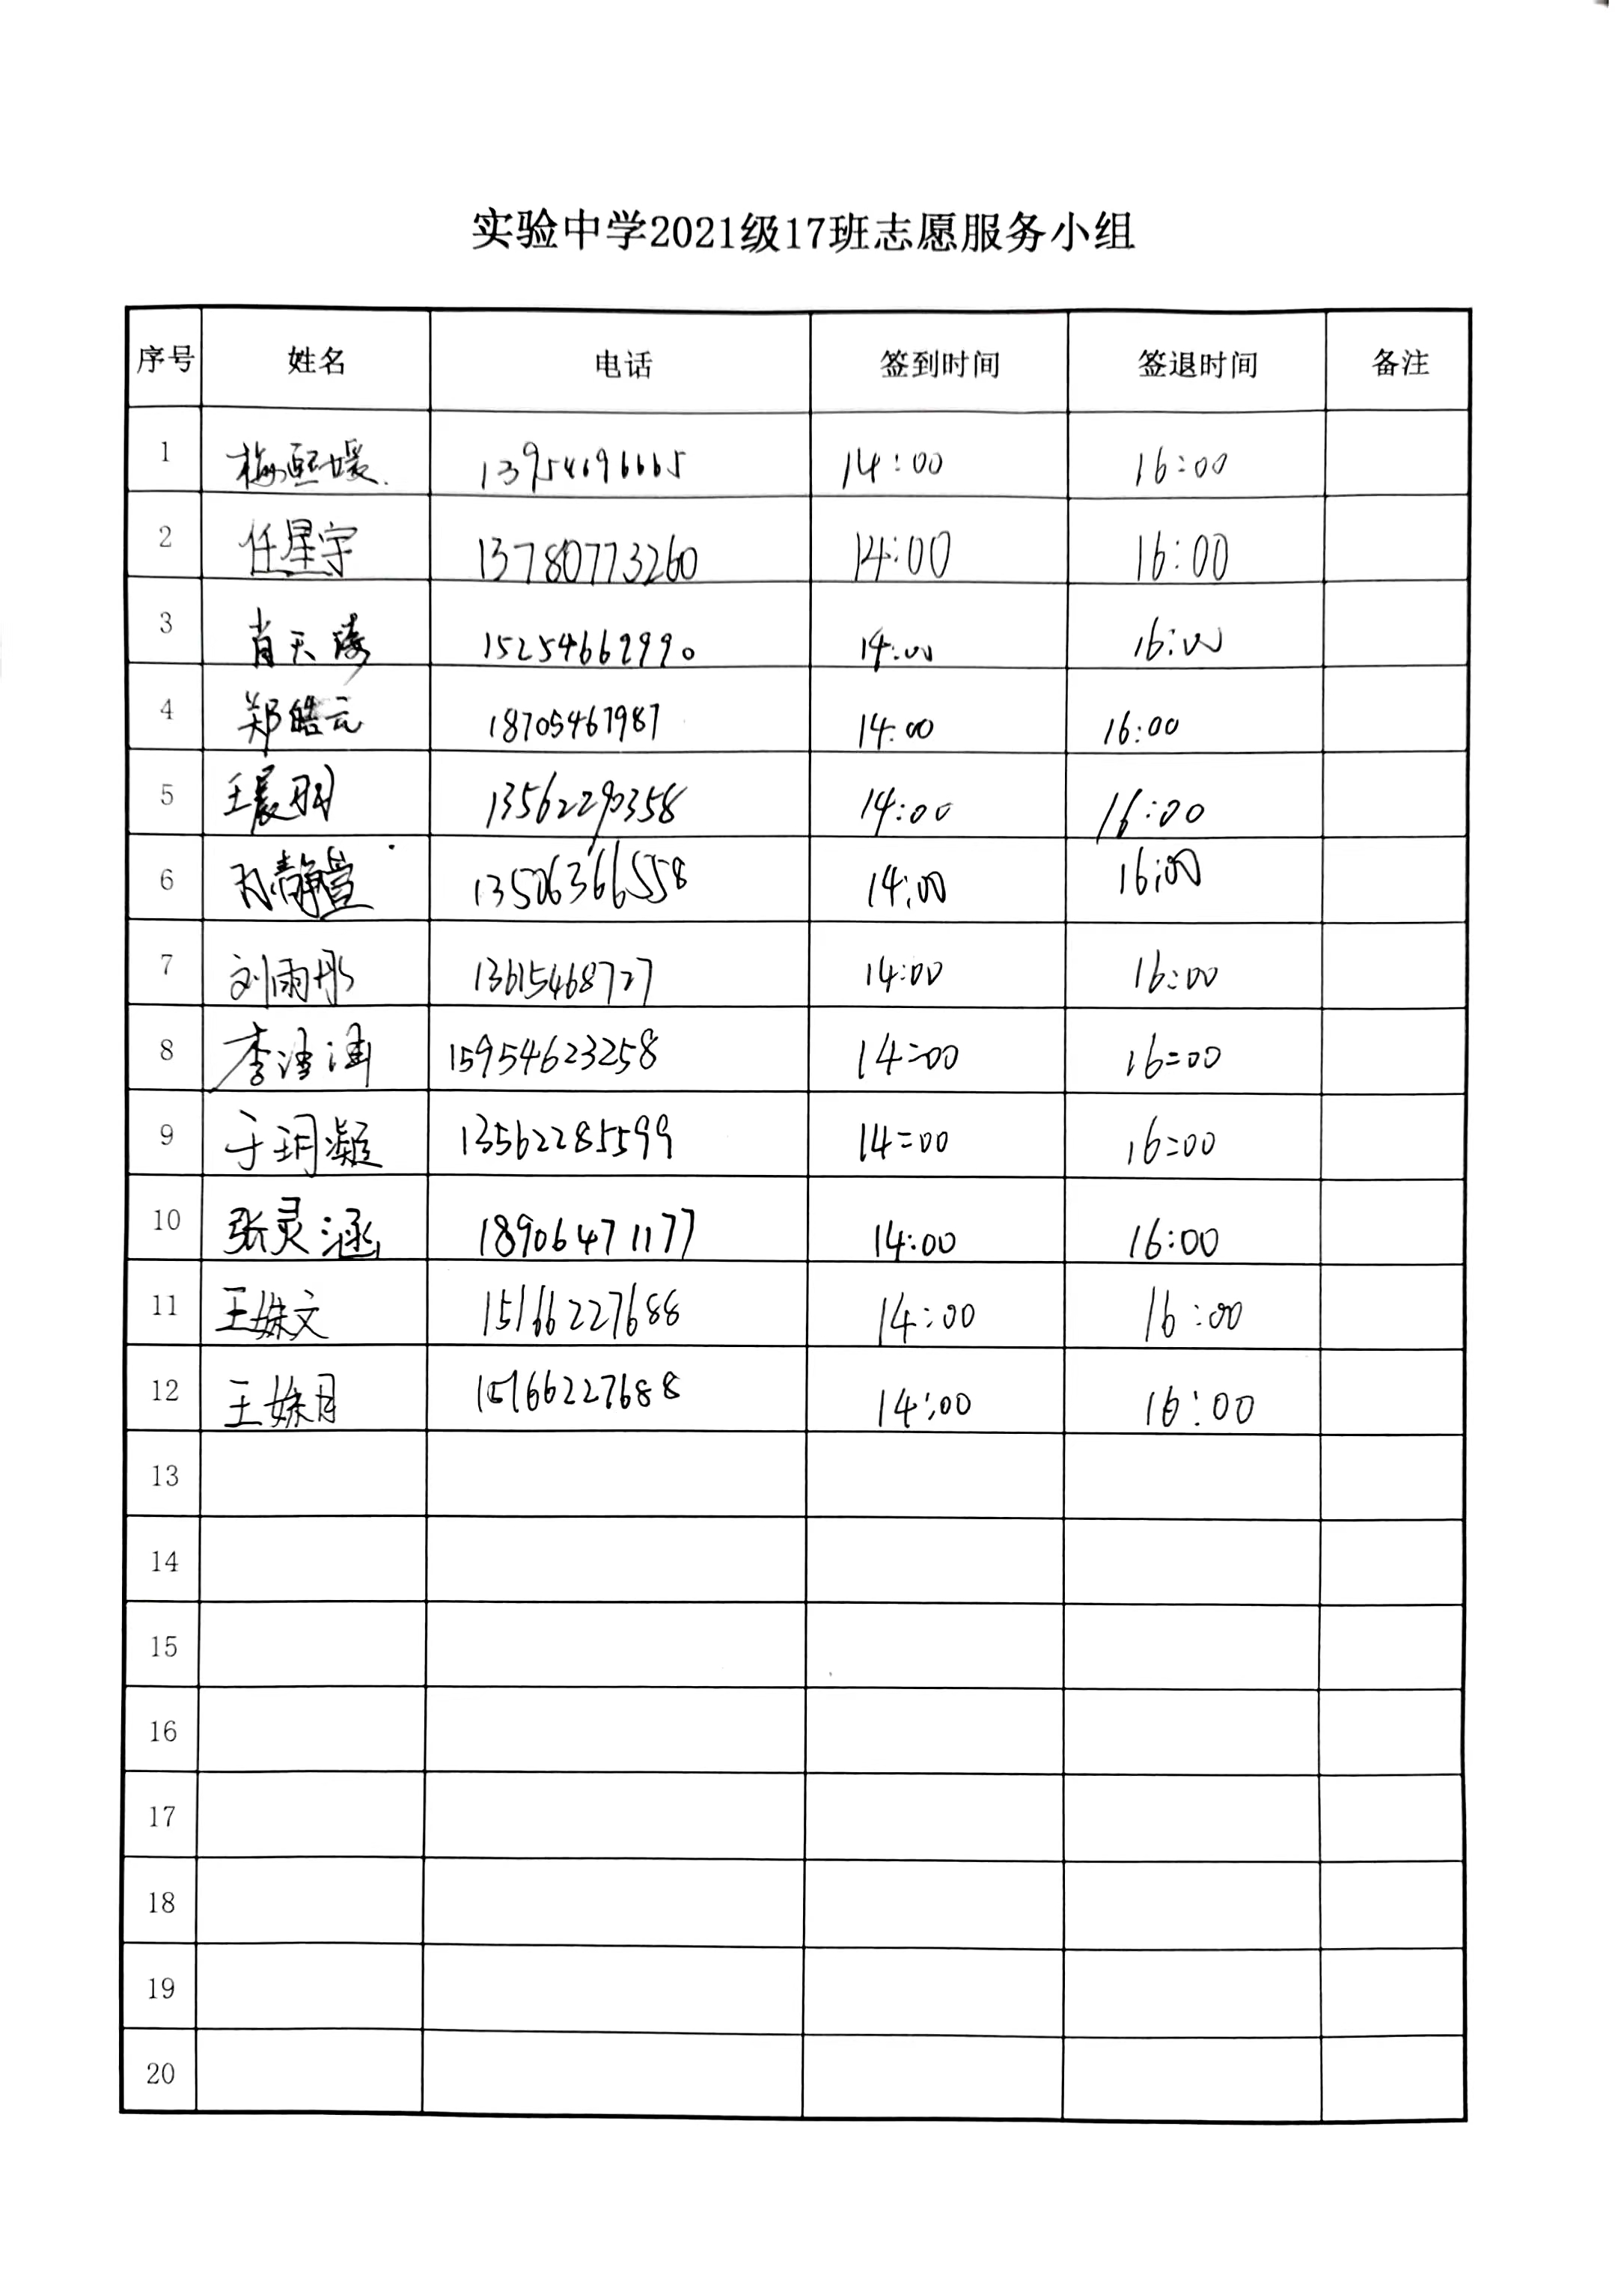 实验中学2021级17班志愿服务小组
序号 姓名 电话 签到时间 签退时间 备注
1 梅熙媛 13954696665 14:00 16:00
2 任星宇 13780773260 14:00 16:00
3 肖天 15254662990 14:00 16:00
4 郑皓云 18705467987 14:00 16:00
5 王晨玥 13562290358 14:00 16:00
6 静萱 13506366558 14:00 16:00
7 刘雨彤 13615468727 14:00 16:00
8 李涵 15954623258 14:00 16:00
9 于玥凝 13562285599 14:00 16:00
10 张灵涵 18906471177 14:00 16:00
11 王姝文 15166227688 14:00 16:00
12 王姝月 15166227688 14:00 16:00
13
14
15
16
17
18
19
20